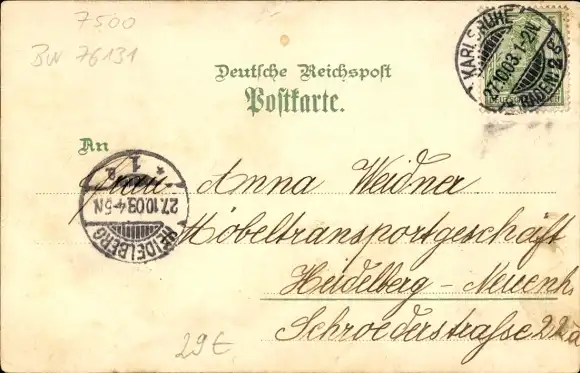 7500
BW 76131
KARLSRUHE
27.10.03.1-2N
(BADEN) 2 c
Deutsche Reichspost
Postkarte.
An
Frau Anna Weidner
Möbeltransportgeschäft
Heidelberg - Neuenh
Schroederstraße 22a
HEIDELBERG
27.10.03.4-5N
* 1 a.
29€